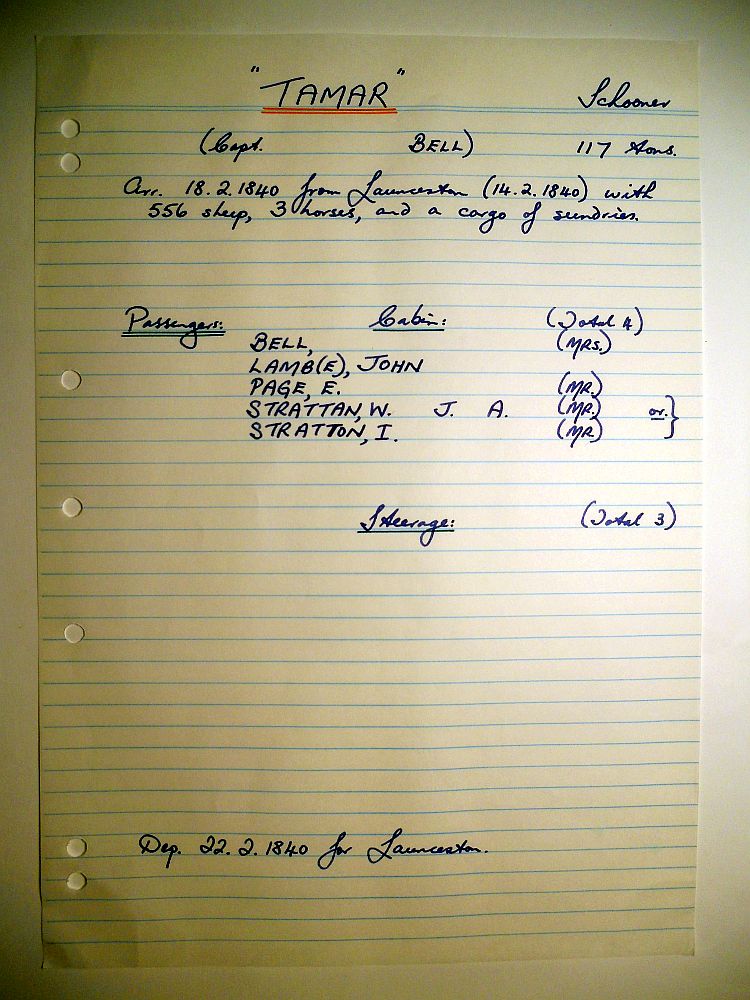 "TAMAR" Schooner
(Capt. BELL) 117 tons.
Arr. 18.2.1840 from Launceston (14.2.1840) with
556 sheep, 3 horses, and a cargo of sundries.
Passengers: Cabin: (Total 4)
BELL, (MRS.)
LAMB(E), JOHN
PAGE, E. (MR.)
STRATTAN, W. J. A. (MR.) or. }
STRATTON, I. (MR)
Steerage: (Total 3)
Dep. 22.2.1840 for Launceston.